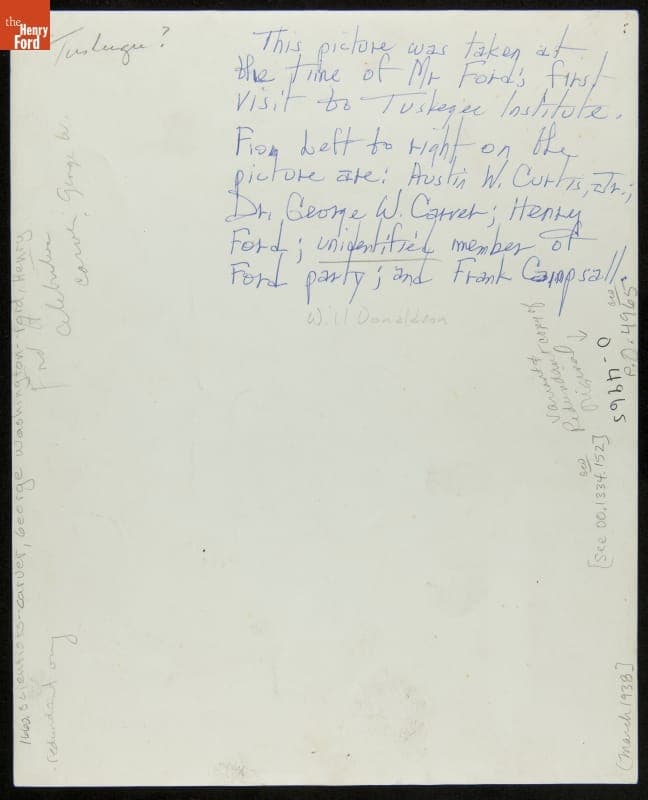 the
Henry
Ford
Tuskegee?
This picture was taken at
the time of Mr Ford's first
visit to Tuskegee Institute.
From Left to right on the
picture are: Austin W. Curtis, Jr.;
Dr. George W. Carver; Henry
Ford; unidentified member of
Ford party; and Frank Campsall.
Will Donaldson
Carver, George W.
Celebrities
Ford
1662 scientists--carver, George Washington--Ford, Henry
redundant
copy of
Redundant
Original
0-4965
P.O. 4965
[see 00.1334.152]
(March 1938]